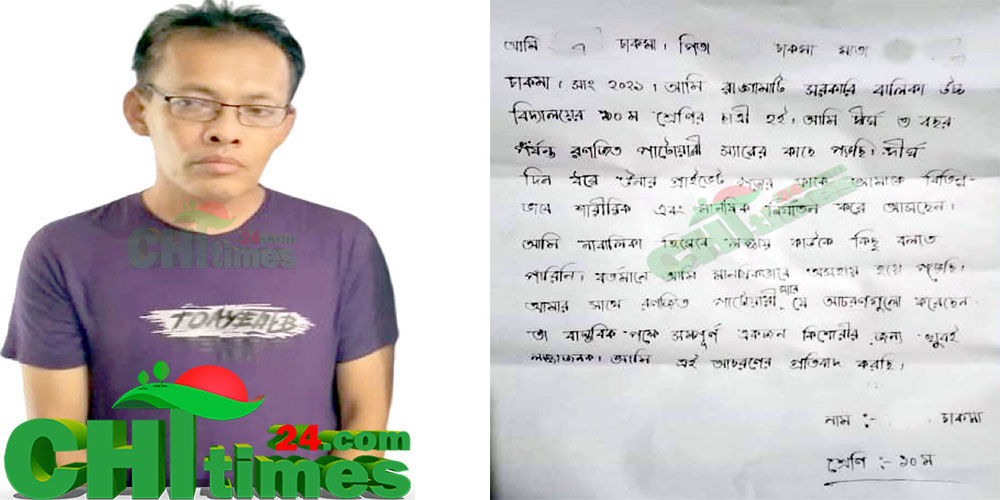 CHT times 24.com
CHT times 24.com
আমি চাকমা। পিতা চাকমা মাতা
চাকমা। সাং ২০২১। আমি রাঙ্গামাটি সরকারি বালিকা উচ্চ
বিদ্যালয়ের ১০ম শ্রেণির ছাত্রী হই। আমি দীর্ঘ ৩ বছর
পর্যন্ত রণজিত পাটোয়ারী স্যারের কাছে পড়ছি। দীর্ঘ
দিন ধরে উনার প্রাইভেট পড়ার ফাকে আমাকে বিভিন্ন-
ভাবে শারীরিক এবং মানষিক নির্যাতন করে আসছেন।
আমি নাবালিকা হিসেবে লজ্জায় কাউকে কিছু বলতে
পারিনি। বর্তমানে আমি মানষিকভাবে অসহায় হয়ে পড়েছি।
আমার সাথে রণজিত পাটোয়ারী স্যার যে আচরণগুলো করেছেন
তা বাস্তবিক পক্ষে সম্পূর্ণ একজন কিশোরীর জন্য খুবই
লজ্জাজনক। আমি এই আচরণের প্রতিবাদ করছি।
নাম :- চাকমা
শ্রেণি :- ১০ম